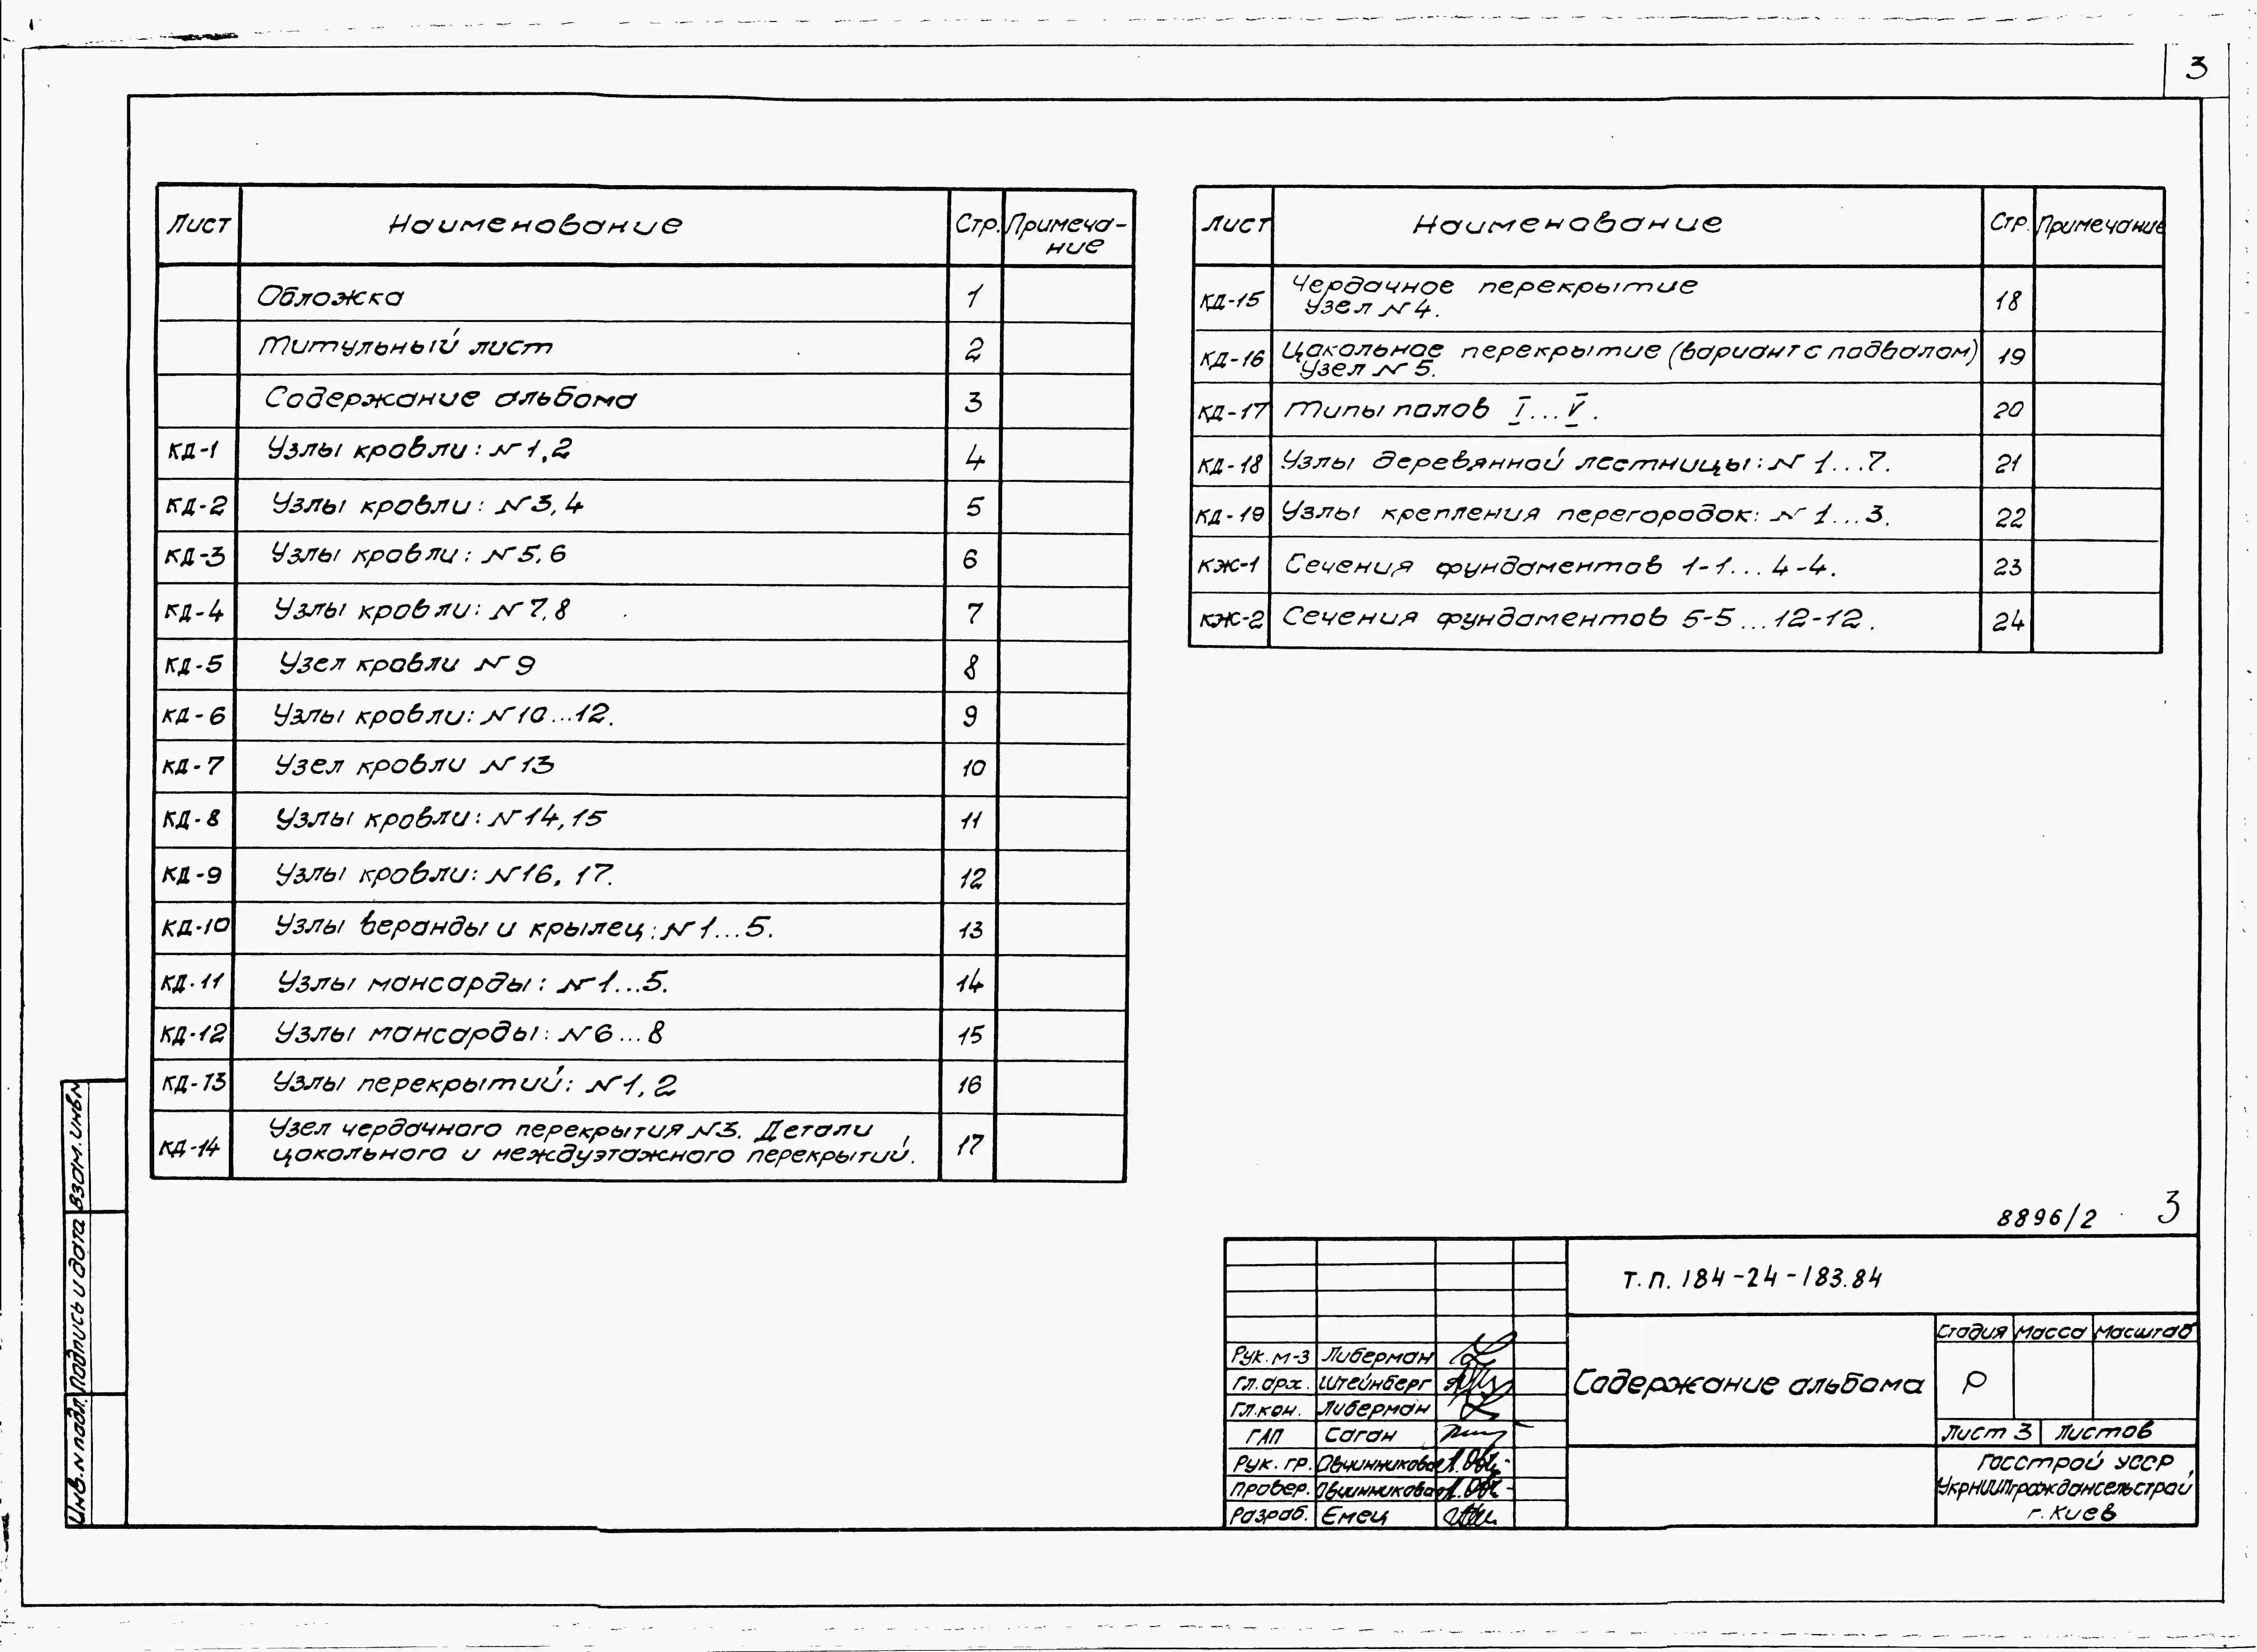 3
Лист Наименование Стр. Примеча-
ние
Обложка 1
Титульный лист 2
Содержание альбома 3
КД-1 Узлы кровли: N 1,2 4
КД-2 Узлы кровли: N 3,4 5
КД-3 Узлы кровли: N 5,6 6
КД-4 Узлы кровли: N 7,8 7
КД-5 Узел кровли N 9 8
КД-6 Узлы кровли: N 10...12. 9
КД-7 Узел кровли N 13 10
КД-8 Узлы кровли: N 14,15 11
КД-9 Узлы кровли: N 16, 17. 12
КД-10 Узлы веранды и крылец: N 1...5. 13
КД-11 Узлы мансарды: N 1...5. 14
КД-12 Узлы мансарды: N 6...8 15
КД-13 Узлы перекрытий: N 1, 2 16
КД-14 Узел чердачного перекрытия N 3. Детали
цокольного и междуэтажного перекрытий. 17
Лист Наименование Стр. Примечание
КД-15 Чердачное перекрытие
Узел N 4. 18
КД-16 Цокольное перекрытие (вариант с подвалом)
Узел N 5. 19
КД-17 Типы полов I...V. 20
КД-18 Узлы деревянной лестницы: N 1...7. 21
КД-19 Узлы крепления перегородок: N 1...3. 22
КЖ-1 Сечения фундаментов 1-1...4-4. 23
КЖ-2 Сечения фундаментов 5-5...12-12. 24
8896/2 3
Т.П. 184-24-183.84
Содержание альбома
Стадия Масса Масштаб
Р
Лист 3 Листов
Госстрой УССР
УкрНИИПграждансельстрой
г. Киев
Рук. м-3 Либерман
Гл. арх. Штейнберг
Гл. кон. Либерман
ГАП Саган
Рук. гр. Овчинникова
Провер. Овчинникова
Разраб. Емец
Взам. инв. N
Подпись и дата
Инв. N подл.